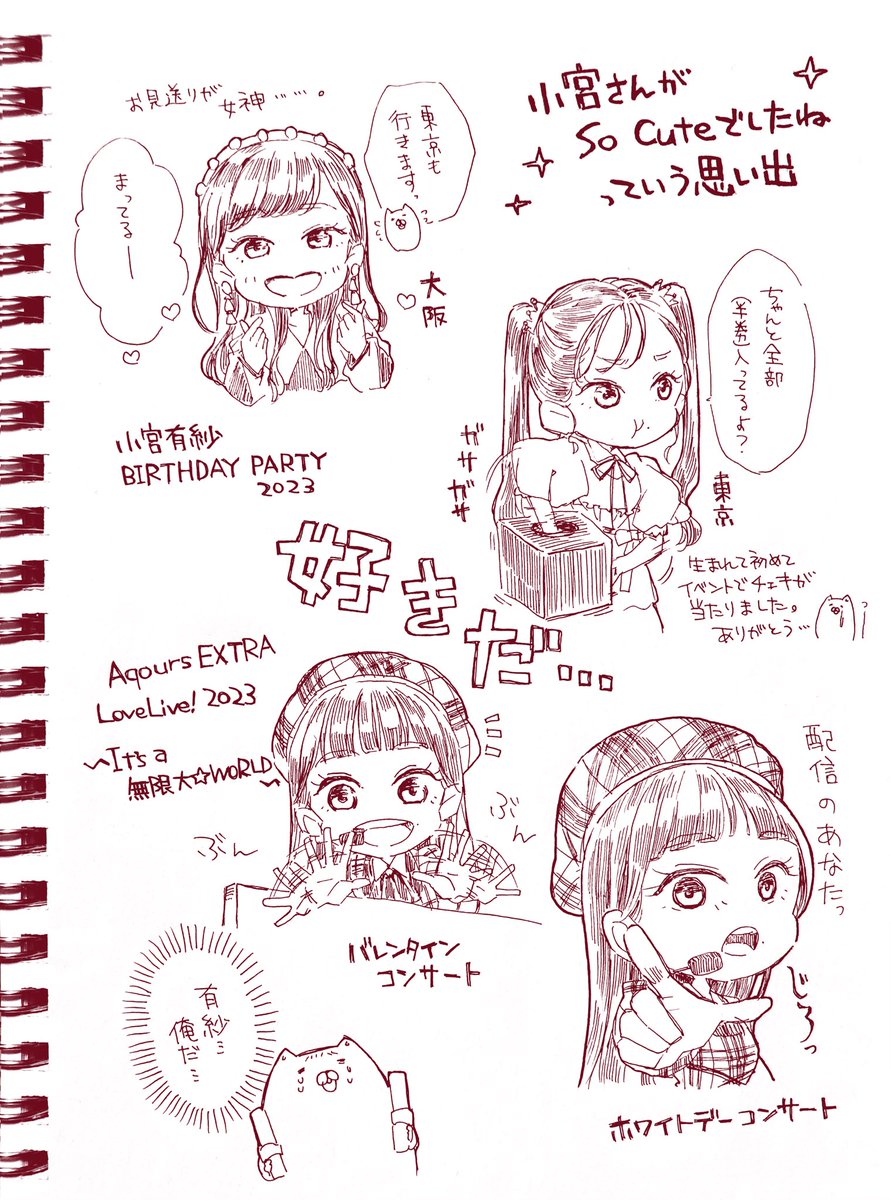 小宮さんが
So Cuteでしたね
っていう思い出
お見送りが女神……。
東京も
行きますっ
まってるー
大阪
小宮有紗
BIRTHDAY PARTY
2023
ちゃんと全部
(半券)入ってるよ?
ガサガサ
東京
生まれて初めて
イベントでチェキが
当たりました。
ありがとう…
好きだ…
Aqours EXTRA
LoveLive! 2023
〜It's a
無限大☆WORLD〜
ぶん
ぶん
バレンタイン
コンサート
配信のあなたっ
じろっ
ホワイトデーコンサート
有紗…
俺だ…